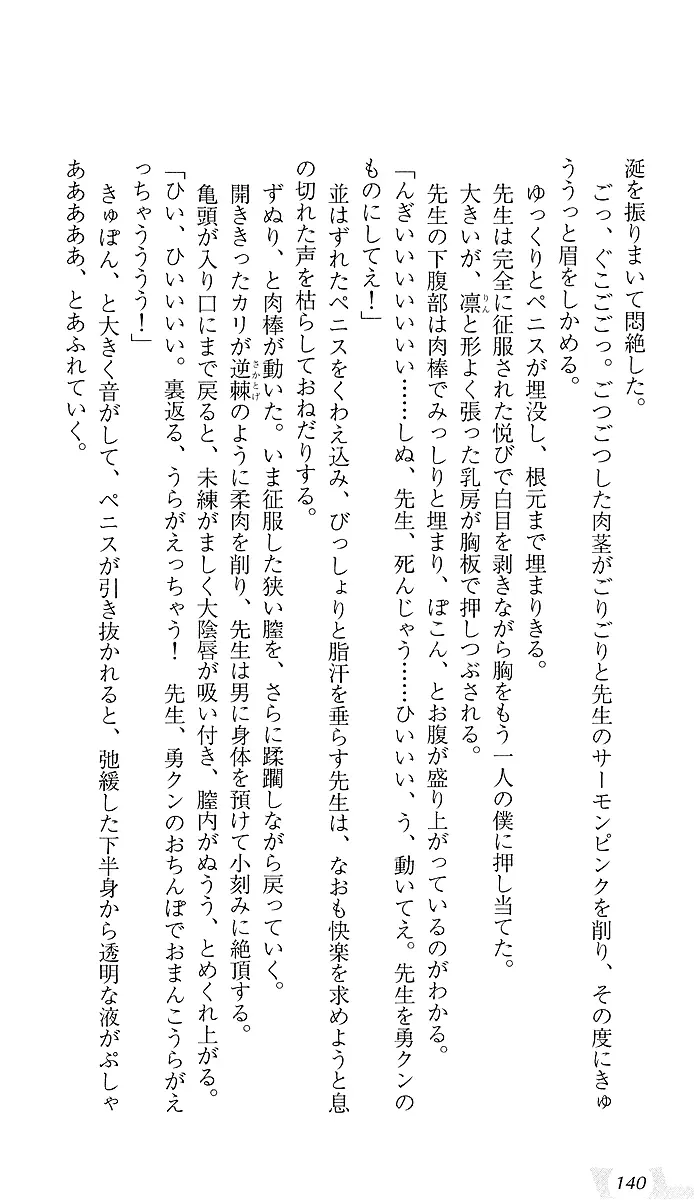 涎を振りまいて悶絶した。
ごっ、ぐこごごっ。ごつごつした肉茎がごりごりと先生のサーモンピンクを削り、その度にきゅ
ううっと眉をしかめる。
ゆっくりとペニスが埋没し、根元まで埋まりきる。
先生は完全に征服された悦びで白目を剥きながら胸をもう一人の僕に押し当てた。
大きいが、凛と形よく張った乳房が胸板で押しつぶされる。
先生の下腹部は肉棒でみっしりと埋まり、ぽこん、とお腹が盛り上がっているのがわかる。
「んぎいいいいいいい……しぬ、先生、死んじゃう……ひいいい、う、動いてえ。先生を勇クンの
ものにしてえ！」
並はずれたペニスをくわえ込み、びっしょりと脂汗を垂らす先生は、なおも快楽を求めようと息
の切れた声を枯らしておねだりする。
ずぬり、と肉棒が動いた。いま征服した狭い膣を、さらに蹂躙しながら戻っていく。
開ききったカリが逆棘のように柔肉を削り、先生は男に身体を預けて小刻みに絶頂する。
亀頭が入り口にまで戻ると、未練がましく大陰唇が吸い付き、膣内がぬうう、とめくれ上がる。
「ひい、ひいいいい。裏返る、うらがえっちゃう！　先生、勇クンのおちんぽでおまんこうらがえ
っちゃうううう！」
きゅぽん、と大きく音がして、ペニスが引き抜かれると、弛緩した下半身から透明な液がぷしゃ
ああああああ、とあふれていく。
140